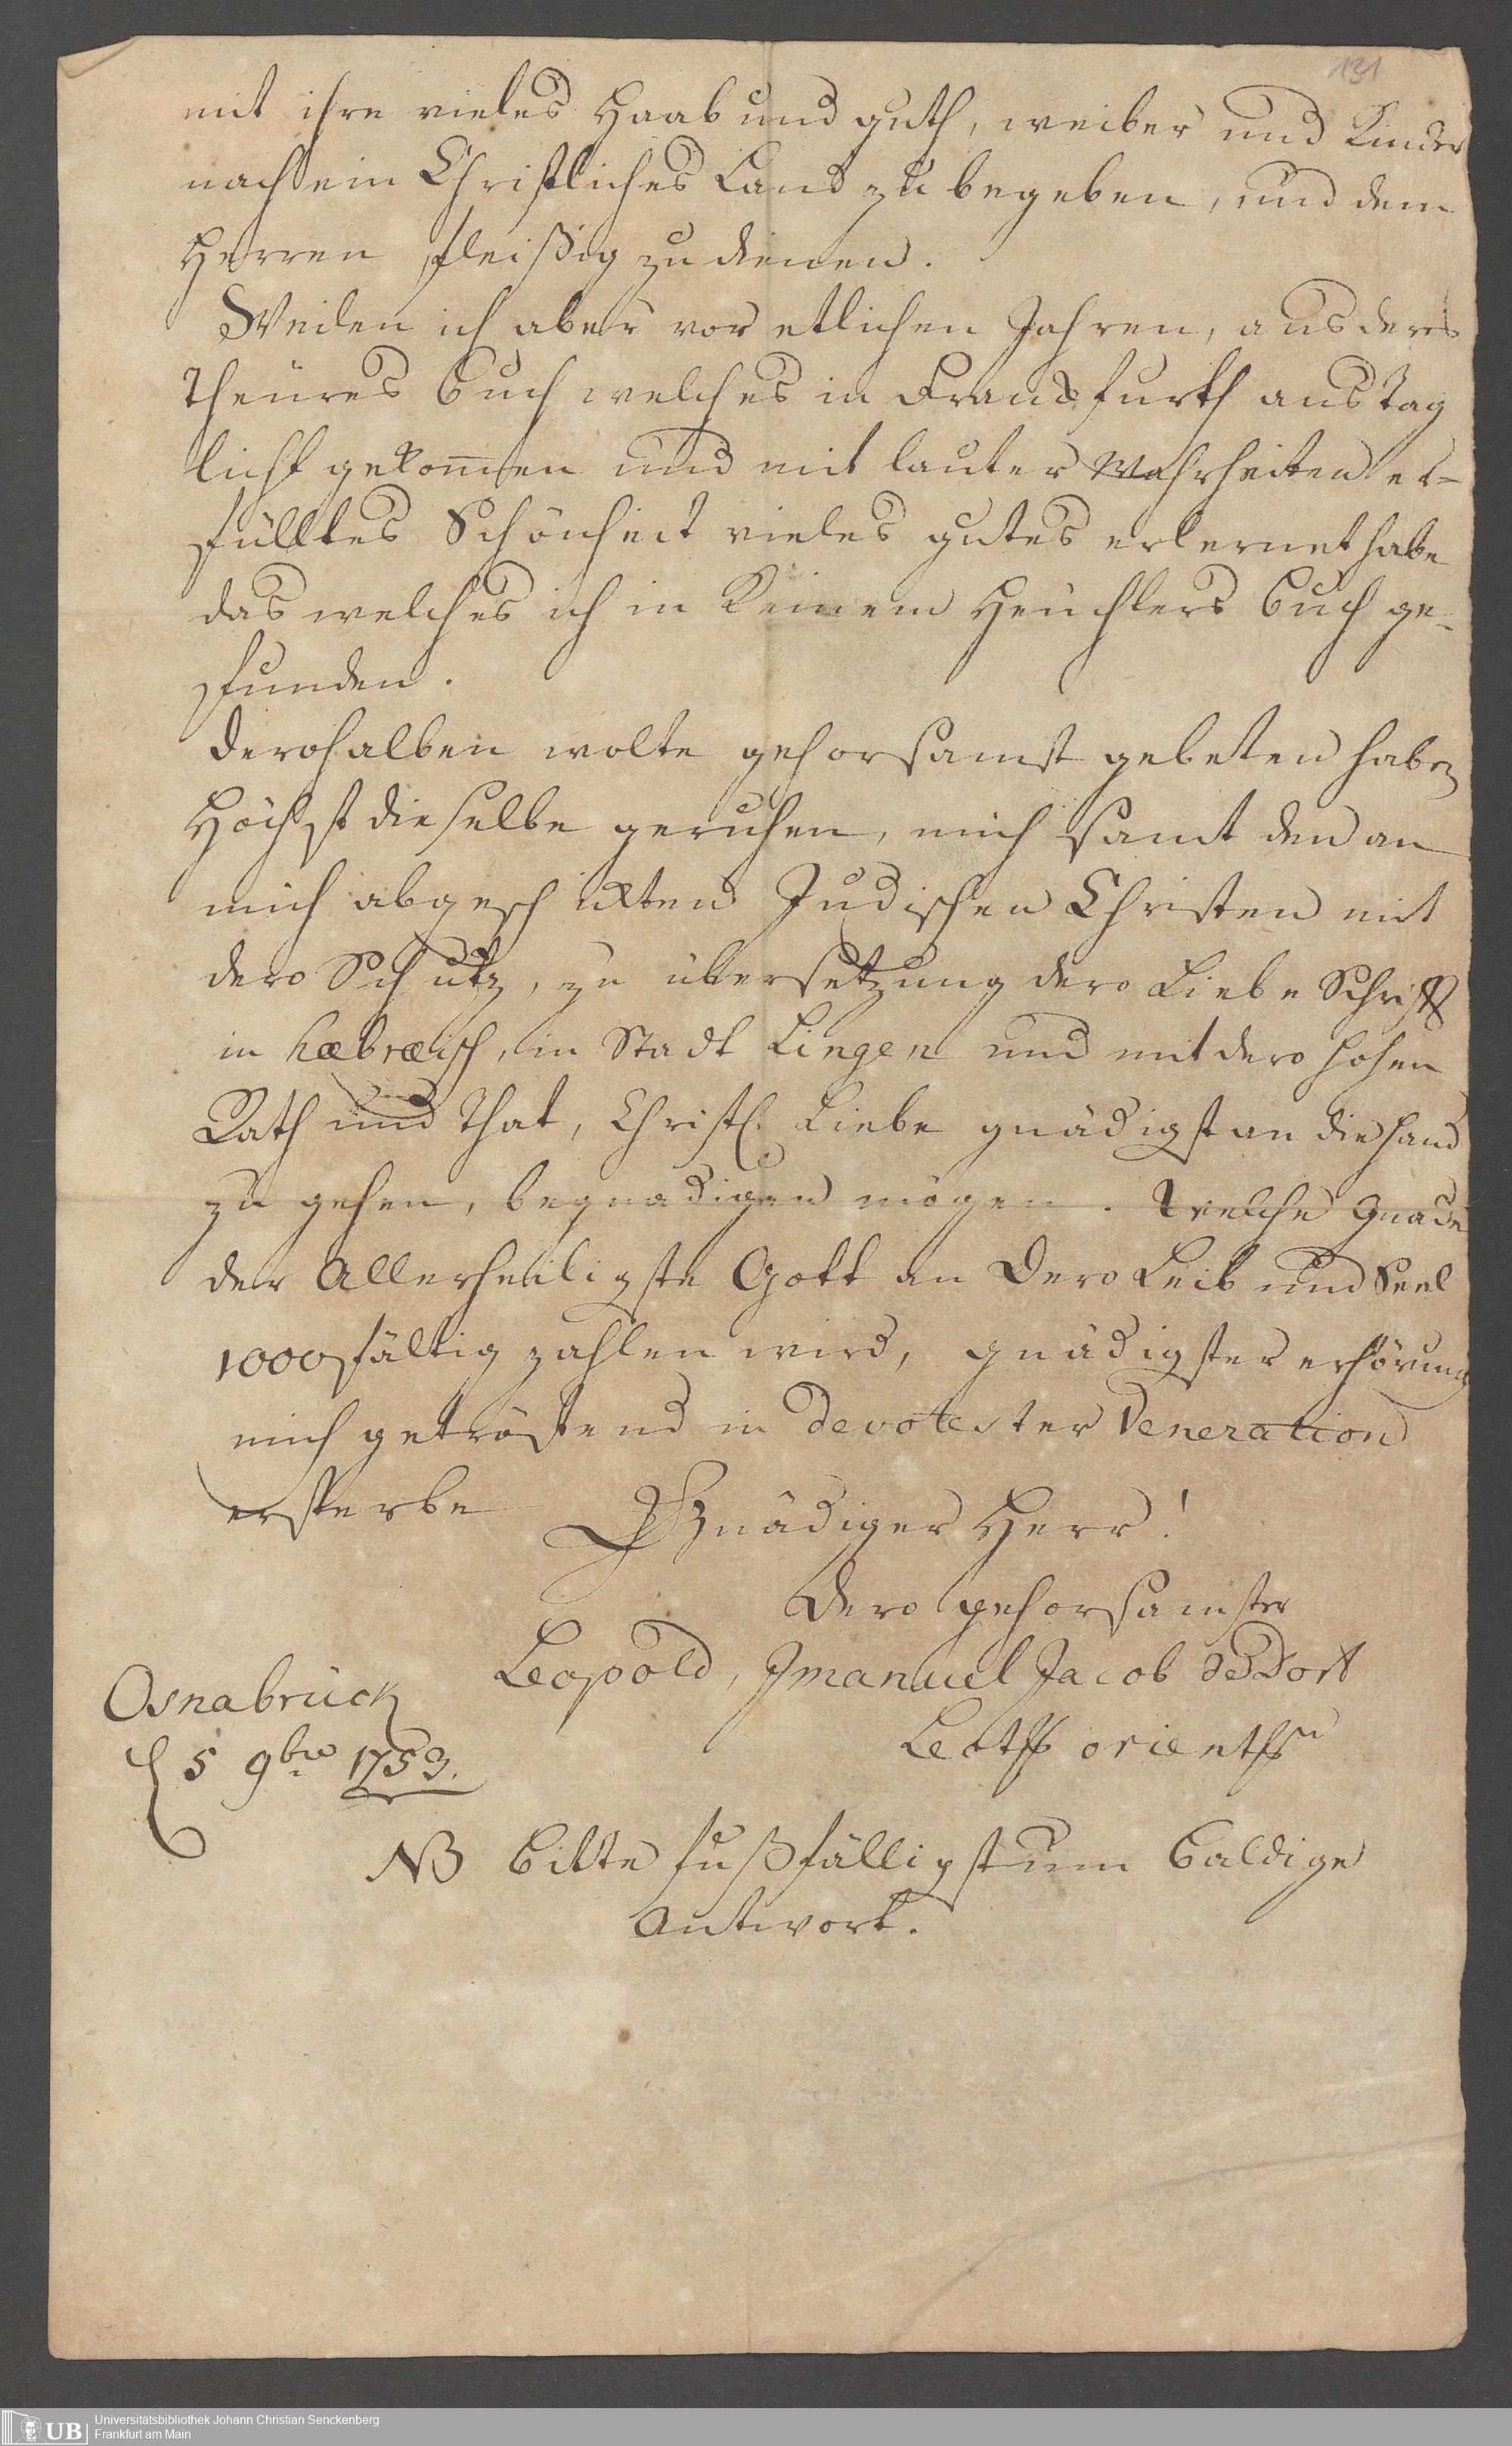 131
mit ihre vieles Haab und guth, weiber und Kinder
nach ein Christliches Land zu begeben, und dem
Herren fleißig zu dienen.
Weilen ich aber vor etlichen Jahren, aus dero
theures Buch welches in Franckfurth ans Tag
licht gekom̄en und mit lauter Wahrheiten er-
fülltes Schönheit vieles gutes erlernet habe
das welches ich in Keinem Heuchlers Buch ge-
funden.
derohalben wolte gehorsamst gebeten haben
Höchst dieselbe geruhen, mich samt den an
mich abgeschickten Judischen Christen mit
dero Schutz, zu übersetzung dero Liebe Schrifft
in hæbræisch, in Stadt Lingen und mit dero hohen
Rath und That, Christl. Liebe gnädigst an die hand
zu gehen, begnadigen mögen. Welche Gnade
der Allerheiligste Gott an Dero Leib und Seel
1000fältig zahlen wird, gnädigster erhörung
mich getröstend in devotester Veneration
ersterbe Gnädiger Herr!
Dero gehorsamster
Leopold, Imanuel Jacob de Dort
Osnabrück
5 9bre 1753.
NB Bitte fußfälligst um Baldige
Antwort.
UB Universitätsbibliothek Johann Christian Senckenberg
Frankfurt am Main